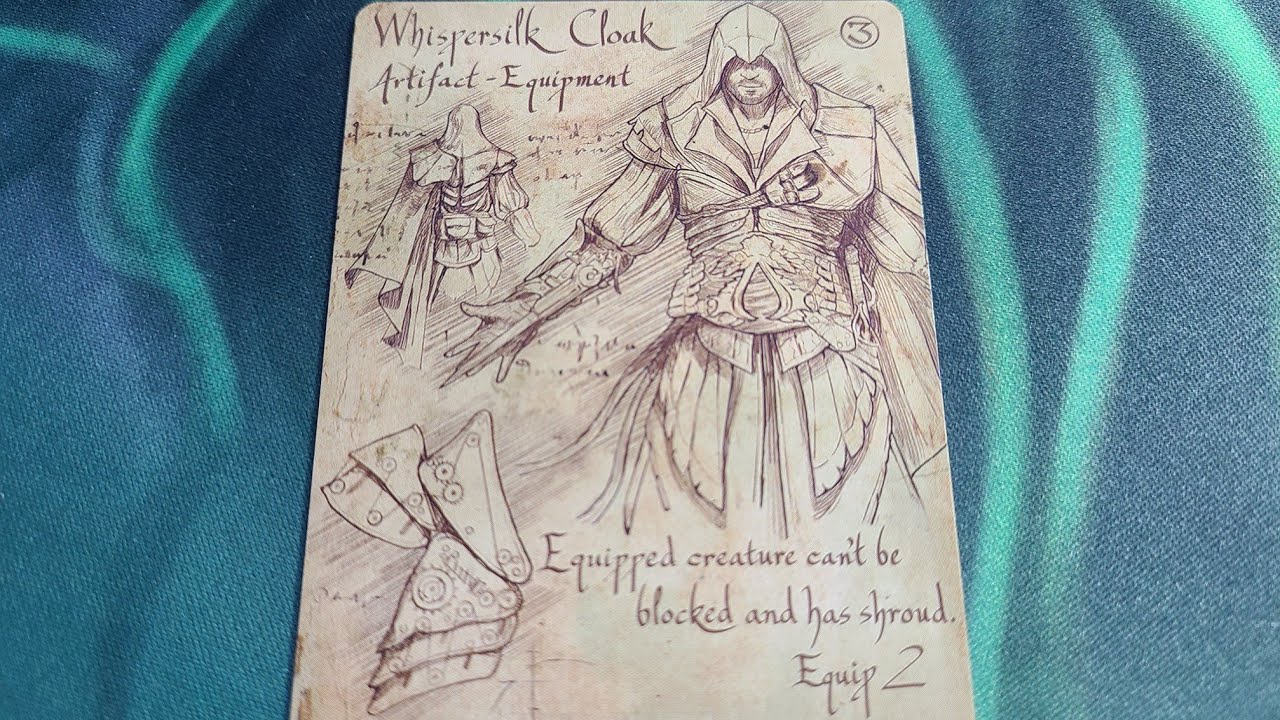 Whispersilk Cloak
3
Artifact - Equipment
Equipped creature can't be
blocked and has shroud.
Equip 2